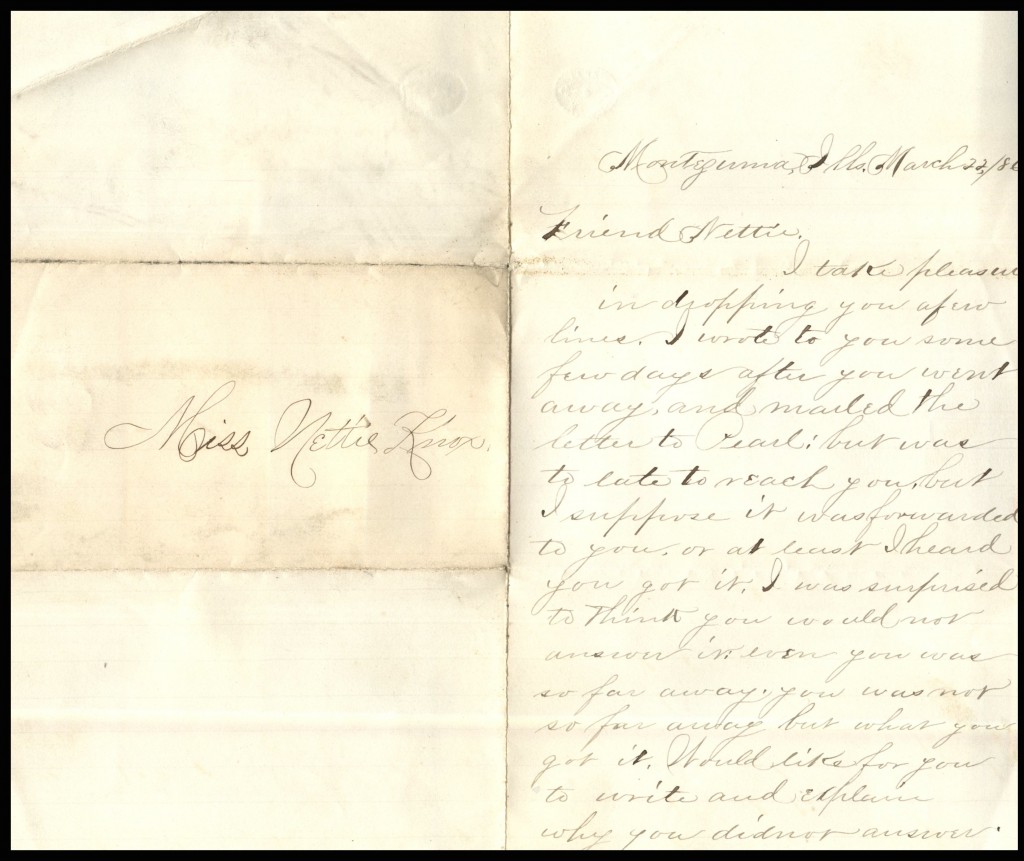 Miss Nettie Knox.
Montezuma, Ills. March 22,/8
Friend Nettie.
I take pleasure
in dropping you a few
lines. I wrote to you some
few days after you went
away, and mailed the
letter to Pearl; but was
to late to reach you, but
I suppose it was forwarded
to you, or at least I heard
you got it. I was surprised
to think you would not
answer it even you was
so far away, you was not
so far away but what you
got it. Would like for you
to write and explain
why you did not answer.